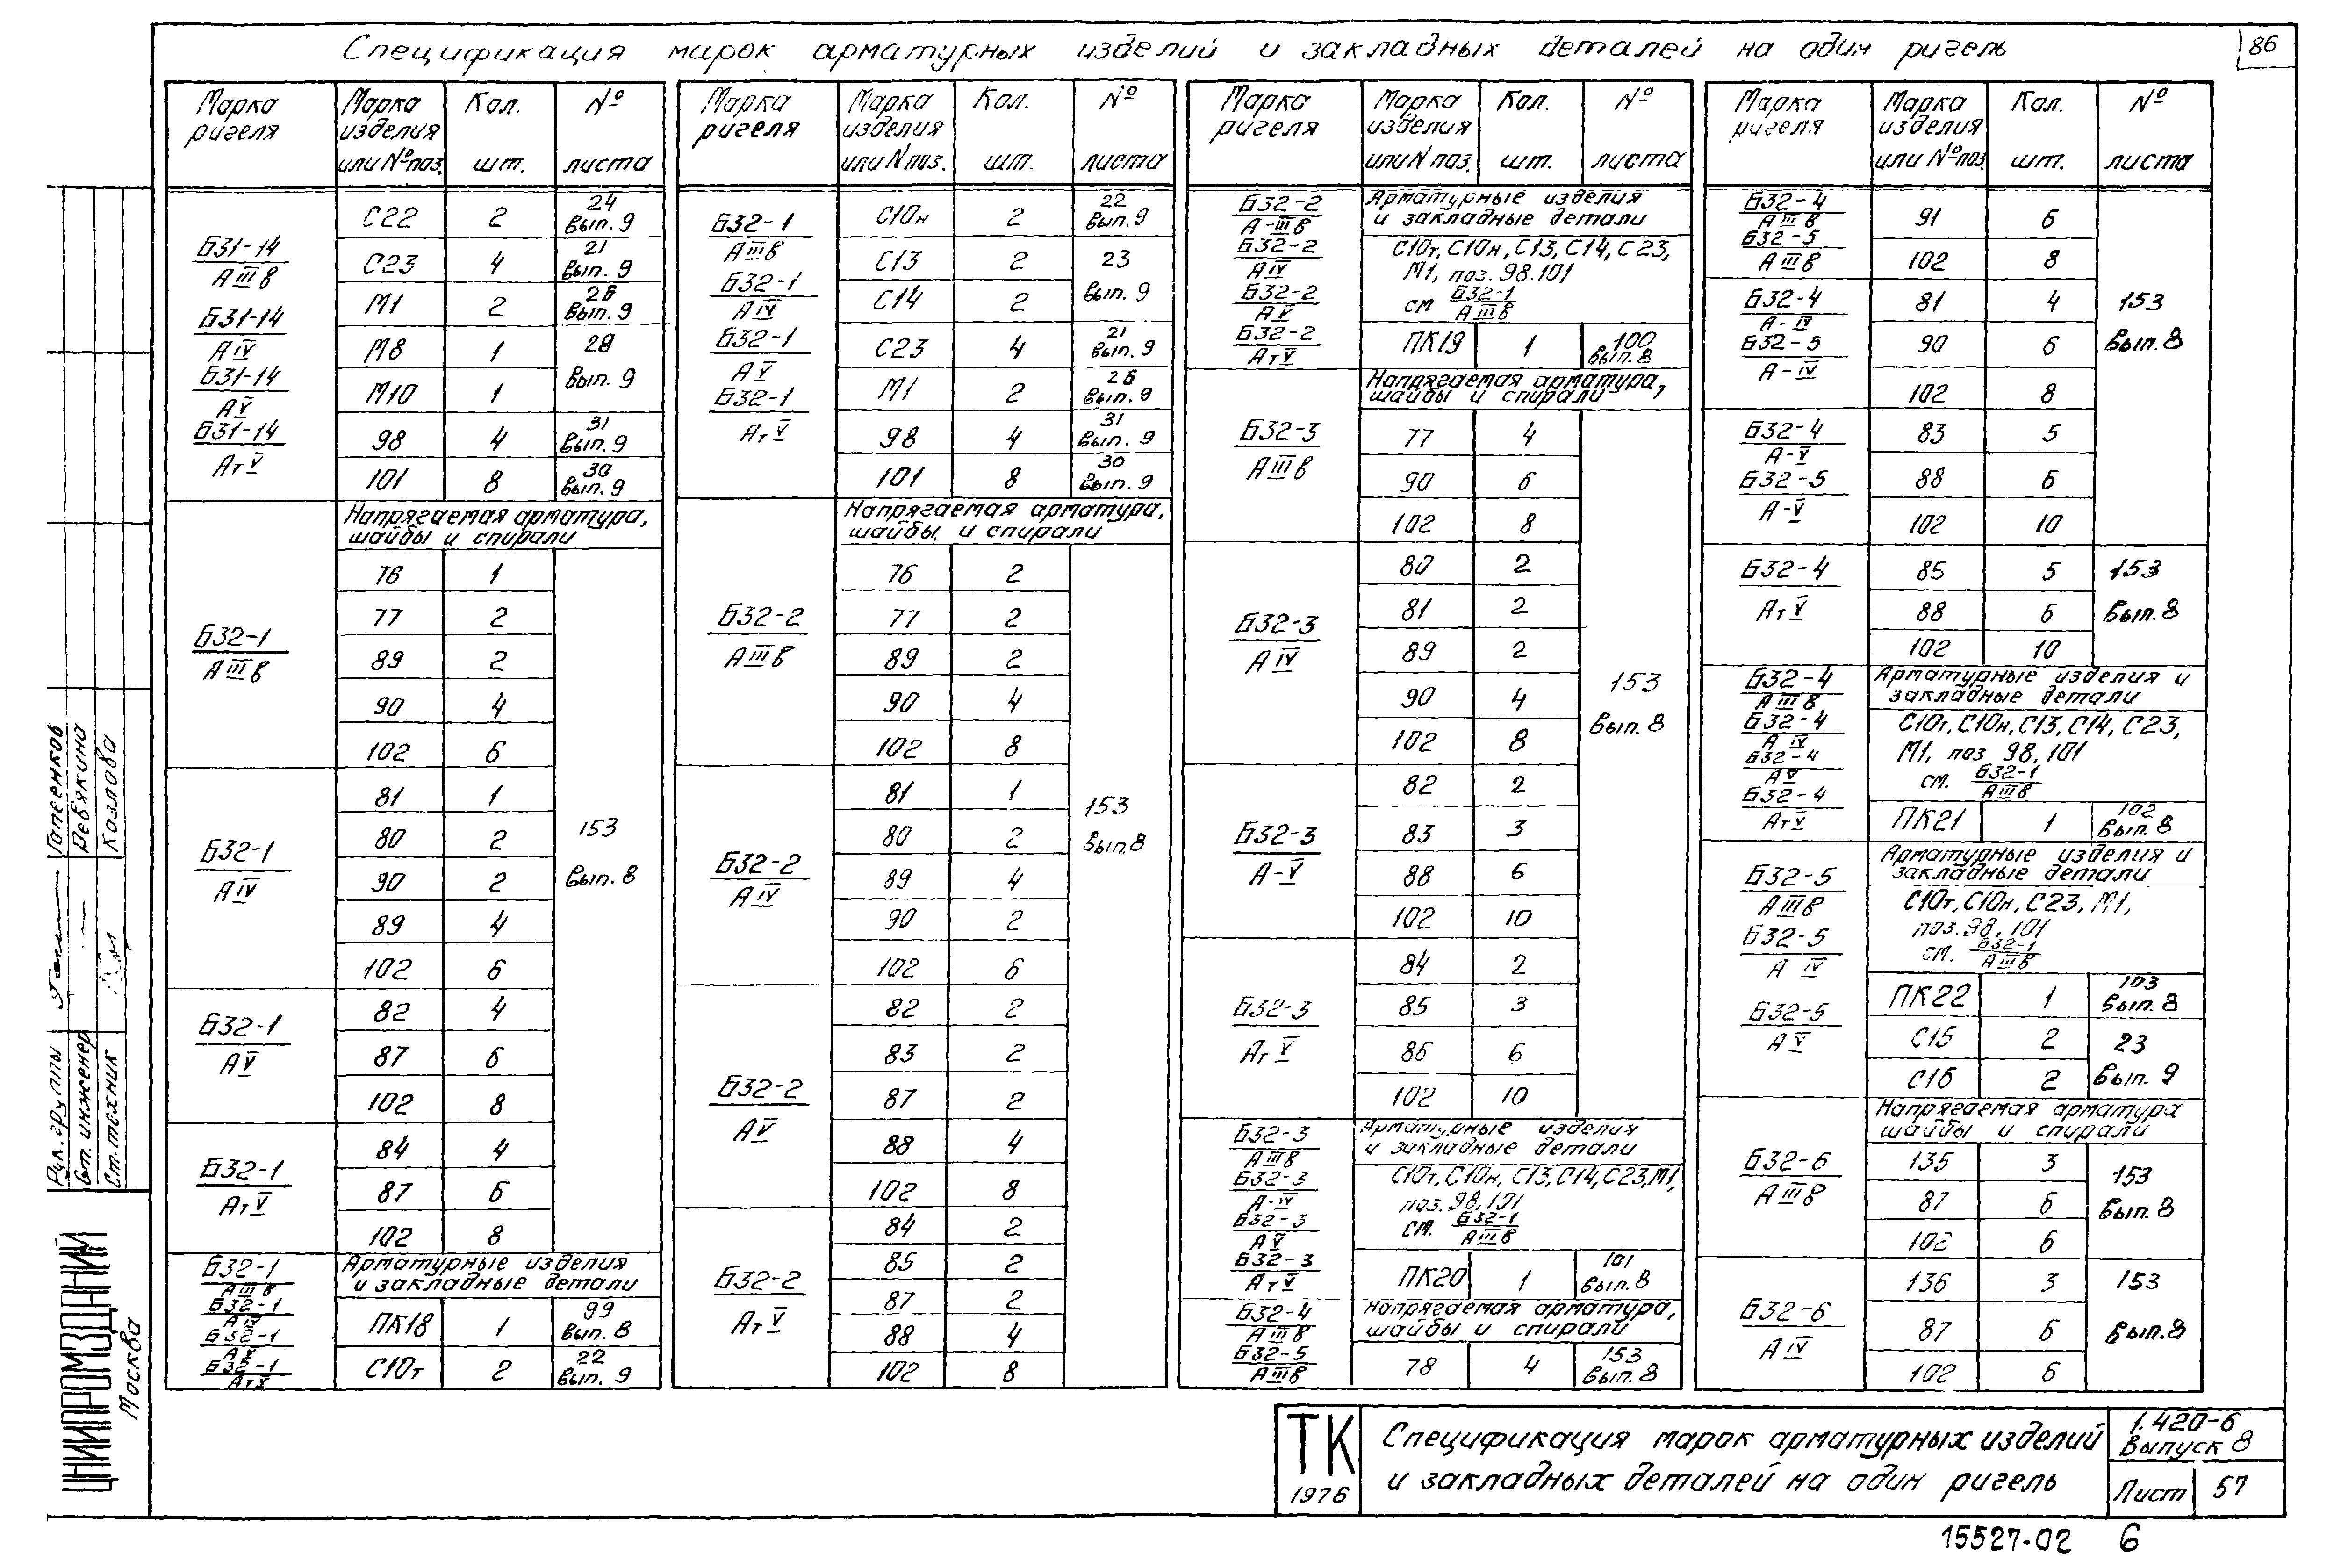 Спецификация марок арматурных изделий и закладных деталей на один ригель
86
Марка ригеля | Марка изделия или № поз. | Кол. шт. | № листа
Б31-14 АIIIв
Б31-14 АIV
Б31-14 АV
Б31-14 АтV
С22 | 2 | 24 Вып. 9
С23 | 4 | 21 Вып. 9
М1 | 2 | 26 Вып. 9
М8 | 1 | 28 Вып. 9
М10 | 1
98 | 4 | 31 Вып. 9
101 | 8 | 30 Вып. 9
Напрягаемая арматура, шайбы и спирали
153 Вып. 8
Б32-1 АIIIв
76 | 1
77 | 2
89 | 2
90 | 4
102 | 6
Б32-1 АIV
81 | 1
80 | 2
90 | 2
89 | 4
102 | 6
Б32-1 АV
82 | 4
87 | 6
102 | 8
Б32-1 АтV
84 | 4
87 | 6
102 | 8
Б32-1 АIIIв
Б32-1 АIV
Б32-1 АV
Б32-1 АтV
Арматурные изделия и закладные детали
ПК18 | 1 | 99 Вып. 8
С10т | 2 | 22 Вып. 9
Марка ригеля | Марка изделия или N поз. | Кол. шт. | № листа
Б32-1 АIIIв
Б32-1 АIV
Б32-1 АV
Б32-1 АтV
С10н | 2 | 22 Вып. 9
С13 | 2 | 23 Вып. 9
С14 | 2
С23 | 4 | 21 Вып. 9
М1 | 2 | 26 Вып. 9
98 | 4 | 31 Вып. 9
101 | 8 | 30 Вып. 9
Напрягаемая арматура, шайбы и спирали
153 Вып. 8
Б32-2 АIIIв
76 | 2
77 | 2
89 | 2
90 | 4
102 | 8
Б32-2 АIV
81 | 1
80 | 2
89 | 4
90 | 2
102 | 6
Б32-2 АV
82 | 2
83 | 2
87 | 2
88 | 4
102 | 8
Б32-2 АтV
84 | 2
85 | 2
87 | 2
88 | 4
102 | 8
Марка ригеля | Марка изделия или N поз. | Кол. шт. | № листа
Б32-2 А-IIIв
Б32-2 АIV
Б32-2 АV
Б32-2 АтV
Арматурные изделия и закладные детали
С10т, С10н, С13, С14, С23,
М1, поз. 98.101
см Б32-1 АIIIв
ПК19 | 1 | 100 Вып. 8
Напрягаемая арматура, шайбы и спирали
153 Вып. 8
Б32-3 АIIIв
77 | 4
90 | 6
102 | 8
Б32-3 АIV
80 | 2
81 | 2
89 | 2
90 | 4
102 | 8
Б32-3 А-V
82 | 2
83 | 3
88 | 6
102 | 10
Б32-3 АтV
84 | 2
85 | 3
86 | 6
102 | 10
Б32-3 АIIIв
Б32-3 А-IV
Б32-3 АV
Б32-3 АтV
Арматурные изделия и закладные детали
С10т, С10н, С13, С14, С23, М1,
поз. 98, 101
см. Б32-1 АIIIв
ПК20 | 1 | 101 Вып. 8
Б32-4 АIIIв
Б32-5 АIIIв
Напрягаемая арматура, шайбы и спирали
78 | 4 | 153 Вып. 8
Марка ригеля | Марка изделия или № поз. | Кол. шт. | № листа
153 Вып. 8
Б32-4 АIIIв
Б32-5 АIIIв
91 | 6
102 | 8
Б32-4 А-IV
Б32-5 А-IV
81 | 4
90 | 6
102 | 8
Б32-4 А-V
Б32-5 А-V
83 | 5
88 | 6
102 | 10
Б32-4 АтV
85 | 5 | 153 Вып. 8
88 | 6
102 | 10
Б32-4 АIIIв
Б32-4 АIV
Б32-4 АV
Б32-4 АтV
Арматурные изделия и закладные детали
С10т, С10н, С13, С14, С23,
М1, поз 98, 101
см. Б32-1 АIIIв
ПК21 | 1 | 102 Вып. 8
Б32-5 АIIIв
Б32-5 АIV
Б32-5 АV
Арматурные изделия и закладные детали
С10т, С10н, С23, М1,
поз. 98, 101
см. Б32-1 АIIIв
ПК22 | 1 | 103 Вып. 8
С15 | 2 | 23 Вып. 9
С16 | 2
Напрягаемая арматура шайбы и спирали
Б32-6 АIIIв
135 | 3 | 153 Вып. 8
87 | 6
102 | 6
Б32-6 АIV
136 | 3 | 153 Вып. 8
87 | 6
102 | 6
Рук. группы
Ст. инженер Ревякина
Ст. техник Козлова
ЦНИИПРОМЗДАНИЙ
Москва
ТК
1976
Спецификация марок арматурных изделий
и закладных деталей на один ригель
1.420-6
Выпуск 8
Лист 57
15527-02 6